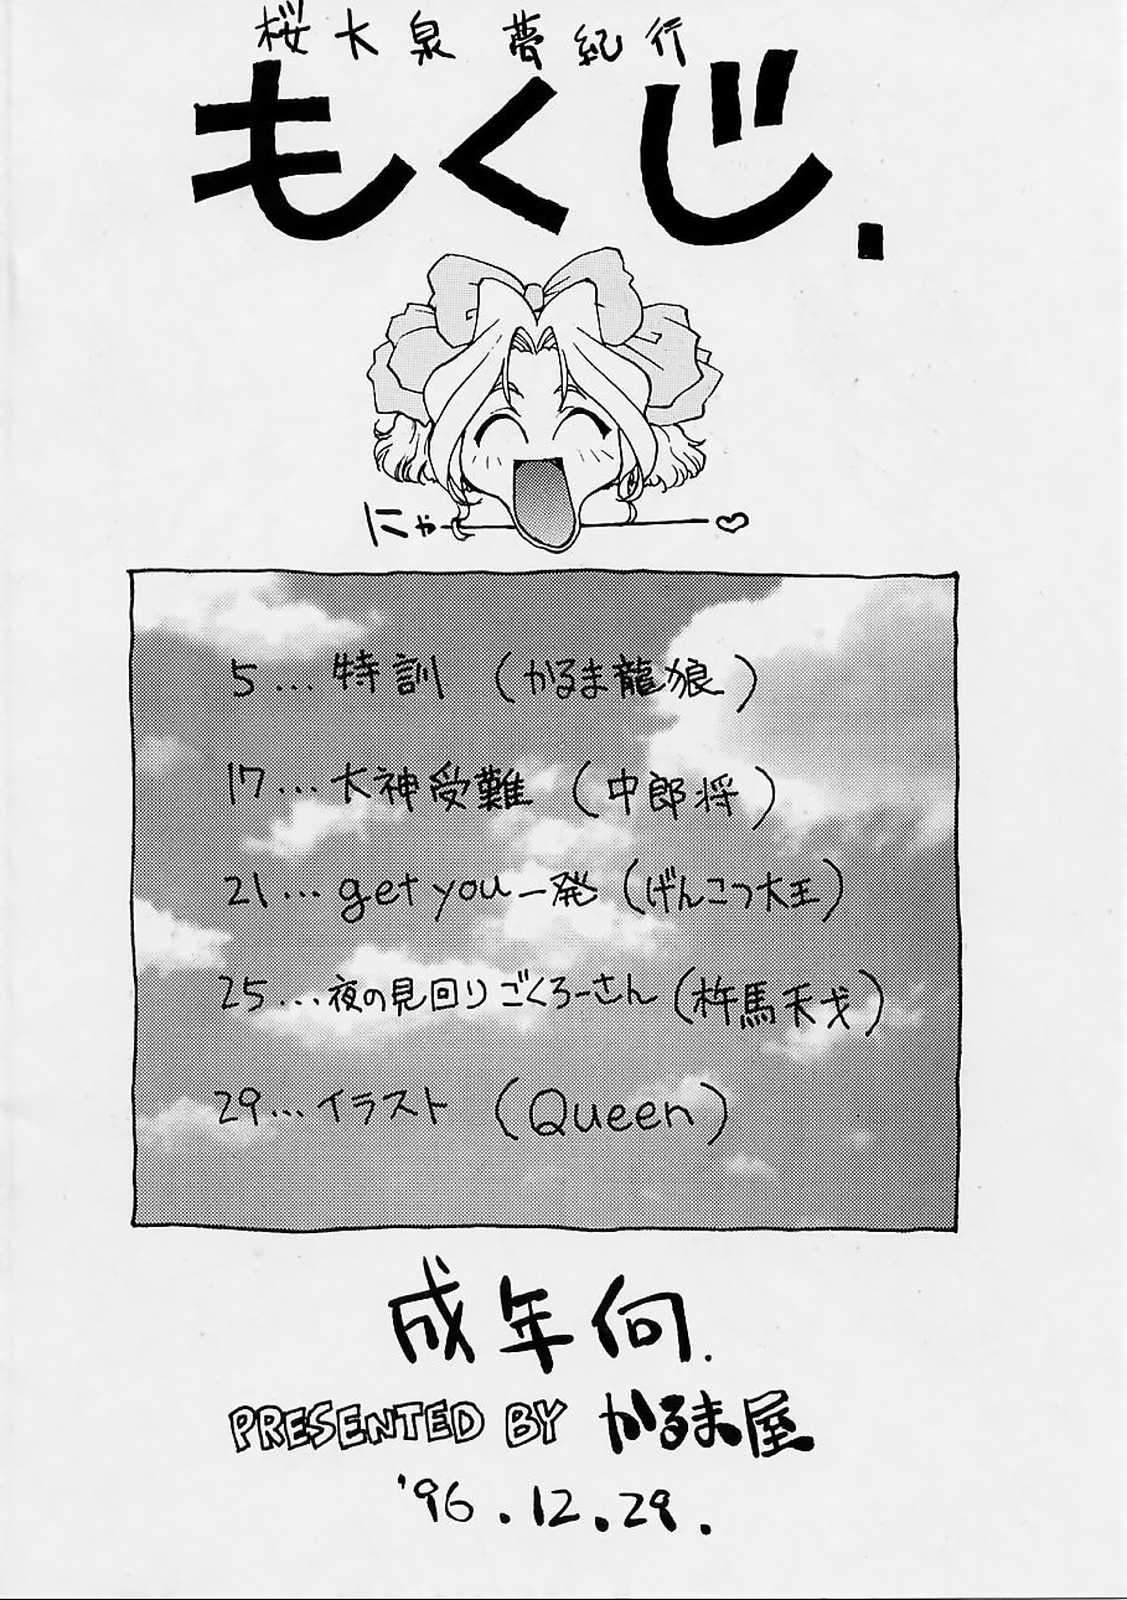 桜大泉夢紀行
もくじ.
にゃー♡
5…特訓 (かるま龍狼)
17…大神受難 (中郎将)
21…get you一発 (げんこつ大王)
25…夜の見回りごくろーさん (杵馬天戈)
29…イラスト (Queen)
成年向.
PRESENTED BY かるま屋
'96.12.29.